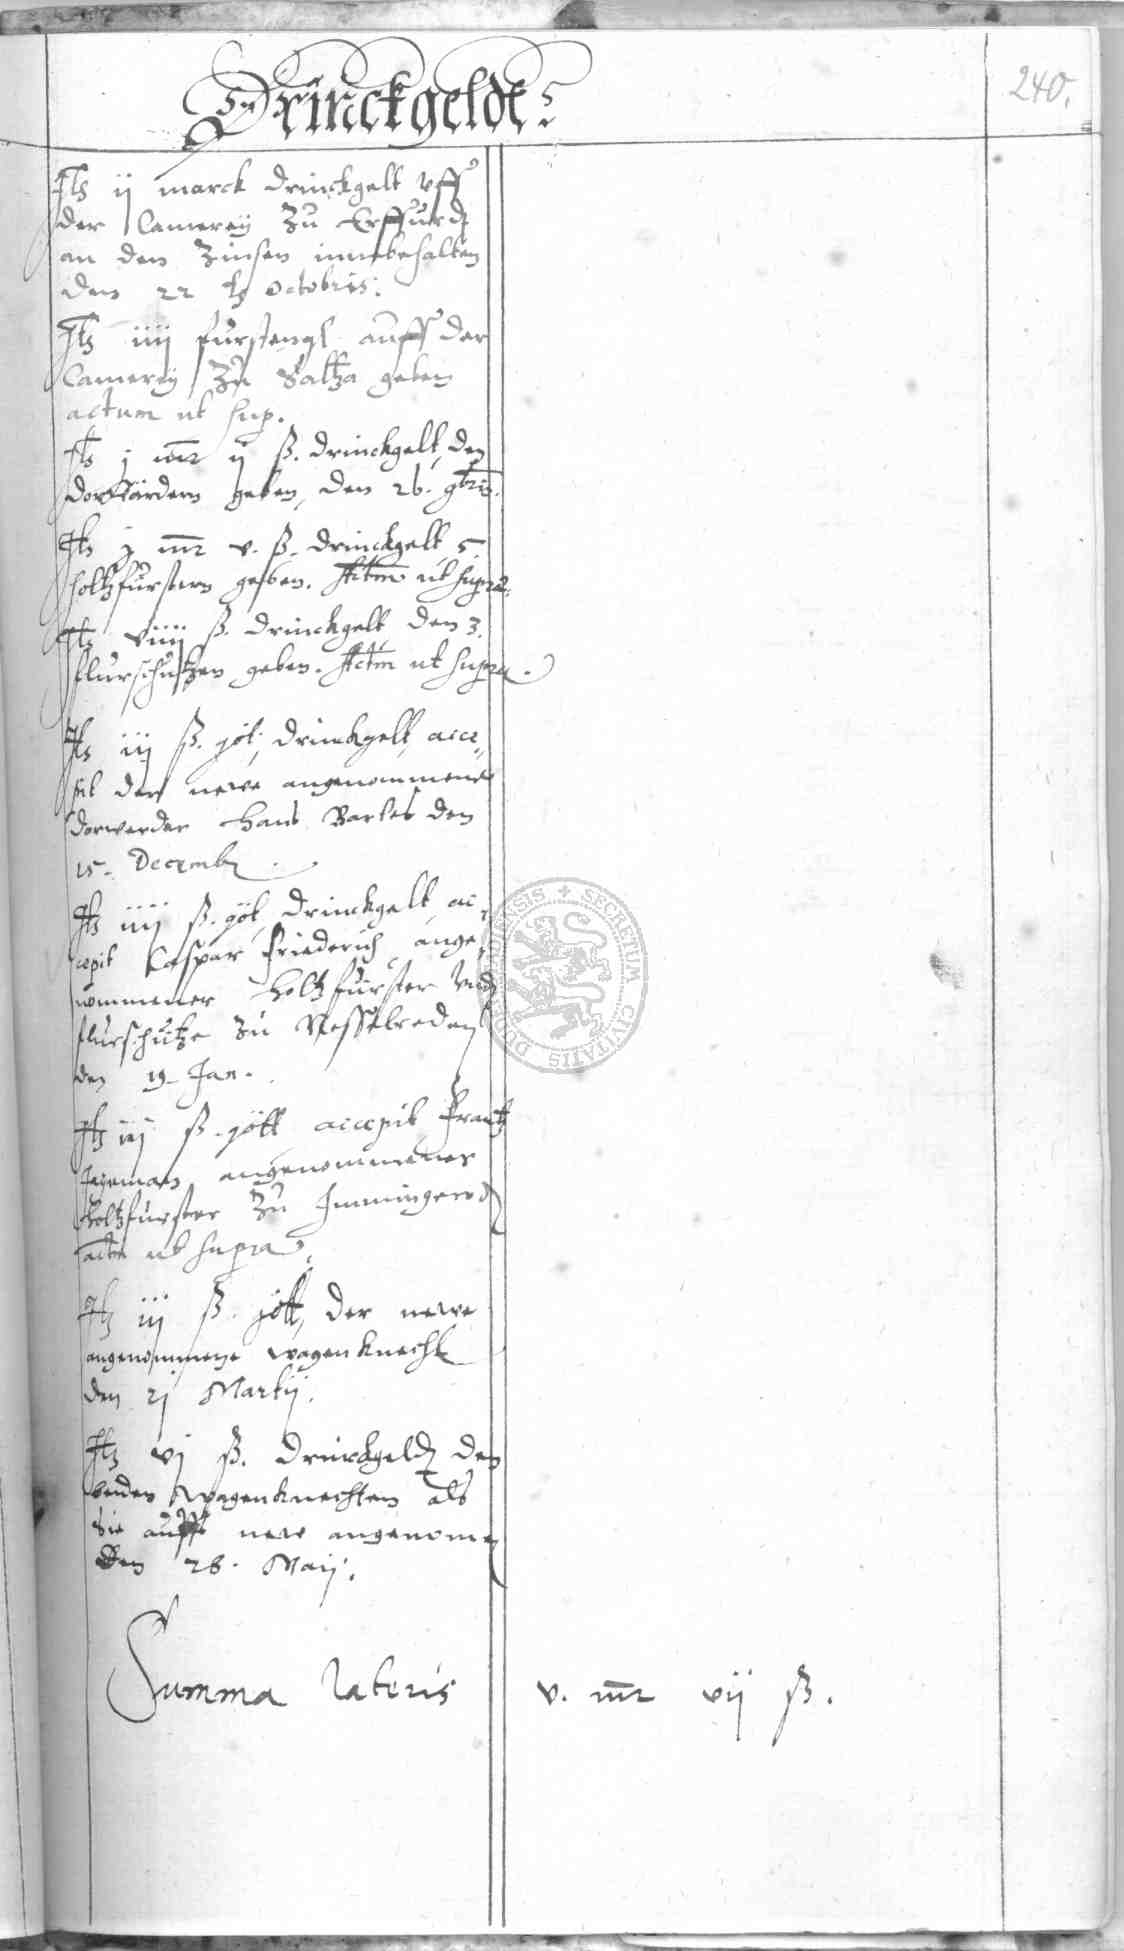 Drinckgeldt
240.
Itz ij marck drinckgelt vff
der Camereÿ zu Erffurdt
an den Zinsen innebehalten
den 22 Octobris.
Itz iiij furstengl auff der
Camereÿ zu Saltza geben
actum ut sup.
Itz j mr ij ß. drinckgelt, den
dorwärdern geben, den 26. 9bris.
Itz j mr v. ß. drinckgelt 5
holtzfurstern geben. Actm ut supra.
Itz viiij ß. drinckgelt, den 3.
flurschutzen geben. Actm ut supra.
Itz iij ß. göt, drinckgelt, acce-
pit der newe angenommene
dorwerder Hans Bartes den
15. Decemb
Itz iiij ß. göt, drinckgelt, ac-
cepit Caspar Friederich, ange-
nommener holtzfurster vnd
flurschutze zu Nesselreden
den 19. Jan.
Itz iij ß. gött accepit Frantz
Jegeman angenommener
holtzfurster zu Immingerod
actm ut supra.
Itz iij ß. gött, der newe
angenommene wagenknecht
den 21 Martij.
Itz vj ß. drinckgeld den
beiden wagenknechten als
sie auffs new angenomen
den 28. Maij.
Summa lateris v. mr vij ß.
SECRETUM CIVITATIS